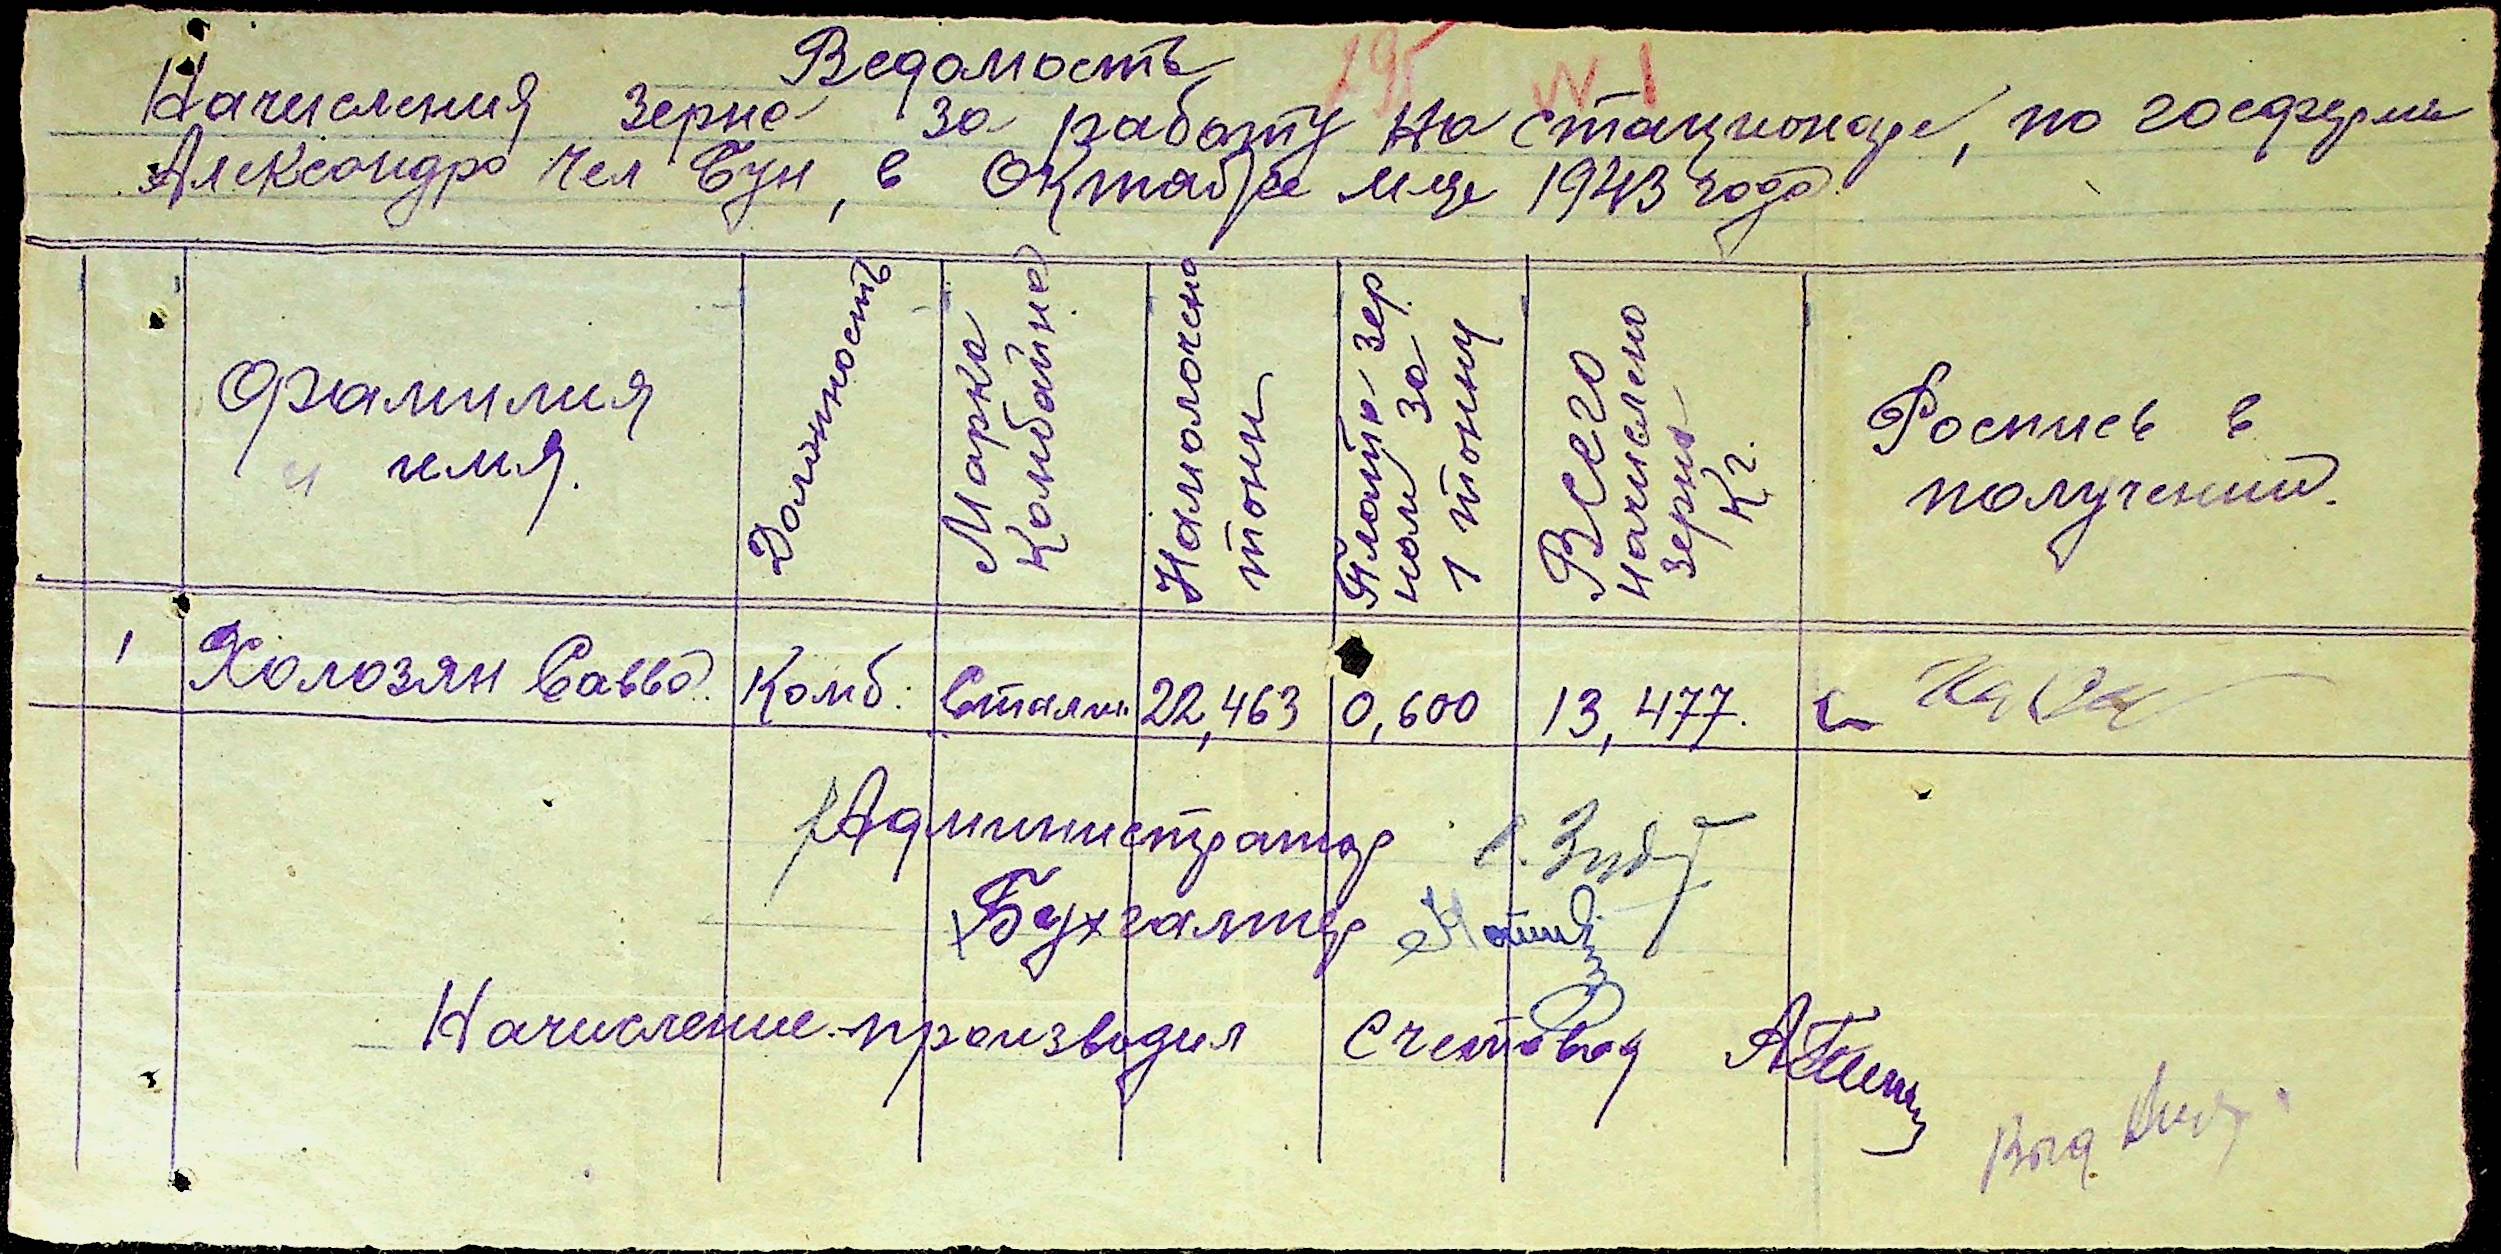 Ведомость 195 N 1
Начисления зерна за работу на стационаре, по госферме
Александро чел Бун, в Октябре м-це 1943 года
Фамилия и имя.
Должность
Марка Комбайна
Намолочено тонн
Плата зерном за 1 тонну
Всего начислено зерна Кг.
Роспись в получении.
1 Холозян Савва. Комб. Сталин. 22,463 0,600 13,477.
Администратор
Бухгалтер
Начисление производил Счетовод